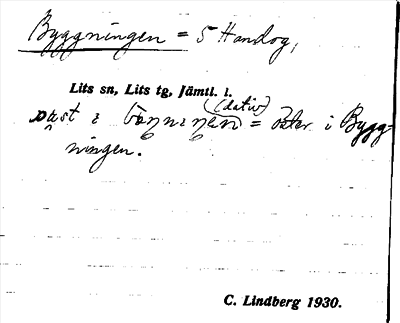 Byggningen = 5 Handog,
Lits sn, Lits tg, Jämtl. l.
(dativ)
i = öster i Bygg-
ningen.
C. Lindberg 1930.